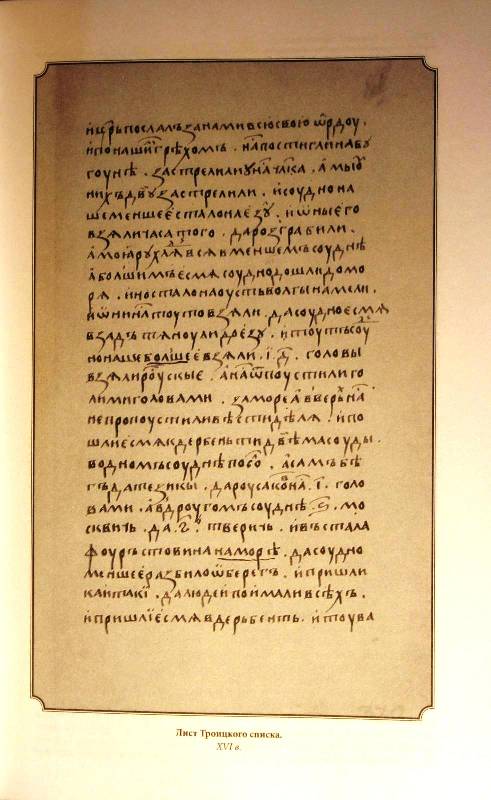 и҆ цр҃ь послалъ за нами всю свою ѡ҆рдоу .
и҆ по нашиⷨ грѣхомъ . на постигли на бу
гоунѣ . застрелили у на чл҃ка . а мы оу
ниⷯ дв҃у застрелили . и҆ соудно на
ше меншее стало на езу . и ѡ҆ны его
взяли часа тог҃о . да розграбили .
а моя рухляⷣ вся в меншемъ соуднѣ
а болшимъ есмя соудно дошли до мо
ря . и҆но стало на оусть волгы на мели .
и ѡ҆ни на тоуто взяли . да соудно есмя
взадъ тяноули до езу . и҆ тоутъ соу
но наше болшее взяли . і҃ . д҃ . головы
взяли роускые . а на ѿпоустили го
лими головами . за море а вверьⷯ на
не пропоустили вѣсти дѣля . и҆ по
шли есмя к дербенти двѣма соуды .
в одномъ соуднѣ посоⷧ . асамъбѣ
гъ да тезикы . да роусаков на . і҃ . голо
вами . а в дроугомъ соуднѣ . ѕ҃ . мо
сквичь . да . ѕ҃ . тверичь . и҆ въстала
фоуръстовина на морѣ . да соудно
меншее разбило ѡ берегъ . и҆ пришли
каитаки . да людей поимали всѣхъ .
и҆ пришли есмя в дерьбенть . и҆ тоу ва
Лист Троицкого списка.
XVI в.